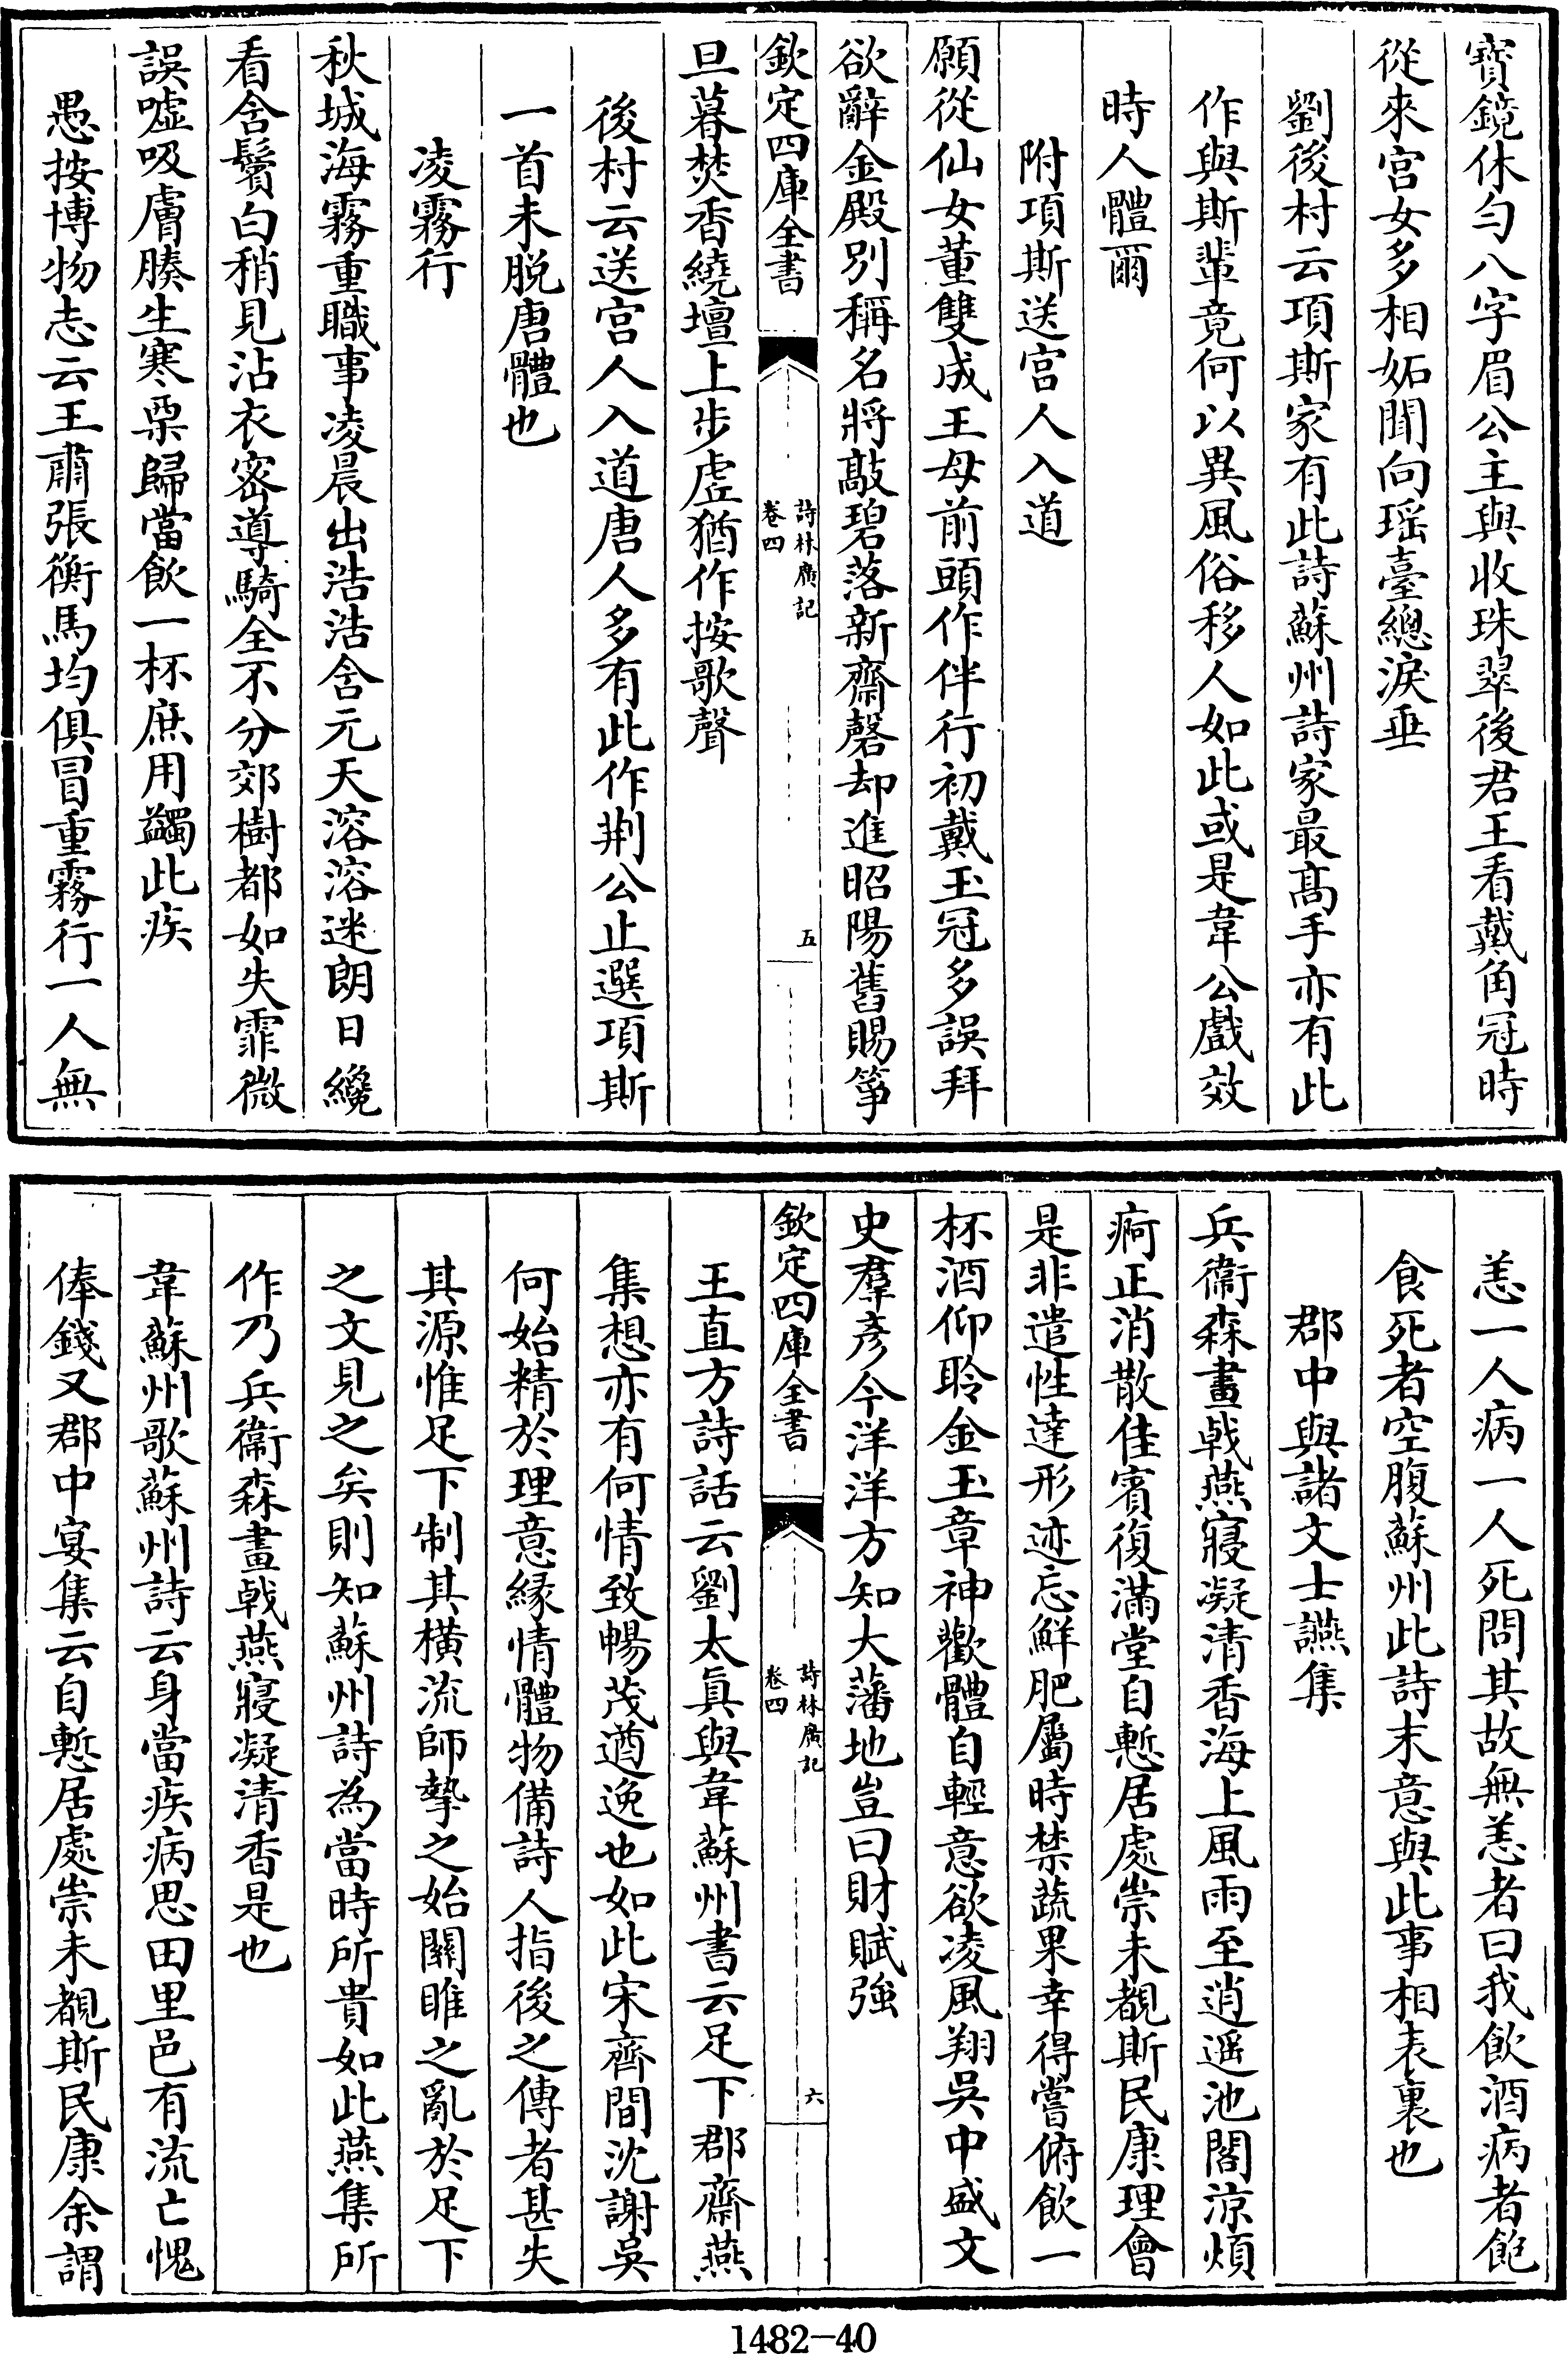 寳鏡休匀八字眉公主與收珠翠後君王看戴角冠時
從來宫女多相妬聞向瑶臺總淚垂
劉後村云項斯家有此詩蘇州詩家最髙手亦有此
作與斯輩竟何以異風俗移人如此或是韋公戲效
時人體爾
附項斯送宫人入道
願從仙女董雙成王母前頭作伴行初戴玉冠多誤拜
欲辭金殿别稱名將敲碧落新齋磬却進昭陽舊賜筝
欽定四庫全書
詩林廣記
卷四
五
旦暮焚香繞壇上步虛猶作按歌聲
後村云送宫人入道唐人多有此作荆公止選項斯
一首未脱唐體也
凌霧行
秋城海霧重職事凌晨出浩浩含元天溶溶迷朗日纔
看含鬢白稍見沾衣密導騎全不分郊樹都如失霏微
誤噓吸膚腠生寒栗歸當飲一杯庶用蠲此疾
愚按博物志云王肅張衡馬均俱冒重霧行一人無
恙一人病一人死問其故無恙者曰我飲酒病者飽
食死者空腹蘇州此詩末意與此事相表裏也
郡中與諸文士讌集
兵衞森畫戟燕寢凝清香海上風雨至逍遥池閣涼煩
疴正消散佳賓復滿堂自慙居處崇未覩斯民康理會
是非遣性達形迹忘鮮肥屬時禁蔬果幸得嘗俯飲一
杯酒仰聆金玉章神歡體自輕意欲凌風翔吳中盛文
史羣彦今洋洋方知大藩地豈曰財賦強
欽定四庫全書
詩林廣記
卷四
六
王直方詩話云劉太眞與韋蘇州書云足下郡齋燕
集想亦有何情致暢茂遒逸也如此宋齊間沈謝吳
何始精於理意緣情體物備詩人指後之傳者甚失
其源惟足下制其橫流師摯之始關雎之亂於足下
之文見之矣則知蘇州詩為當時所貴如此燕集所
作乃兵衞森畫戟燕寢凝清香是也
韋蘇州歌蘇州詩云身當疾病思田里邑有流亡愧
俸錢又郡中宴集云自慙居處崇未覩斯民康余謂
1482-40